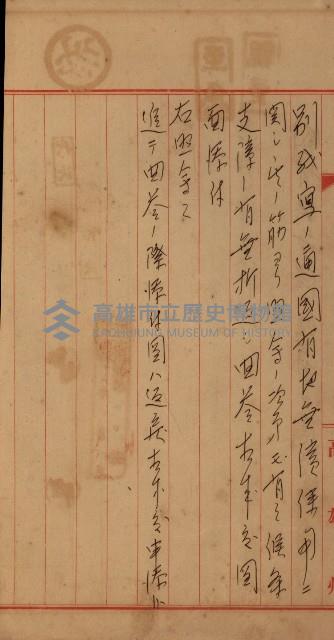 別紙寫ノ通國有地無償使用ニ
関シ其ノ筋ヨリ照會ノ次第モ有之候条
支障ノ有無折返シ回答相成度図
面添付
右照會ス
追テ回答ノ際添付図ハ返戻相成度申添フ
高雄州
高雄市立歷史博物館
KAOHSIUNG MUSEUM OF HISTORY